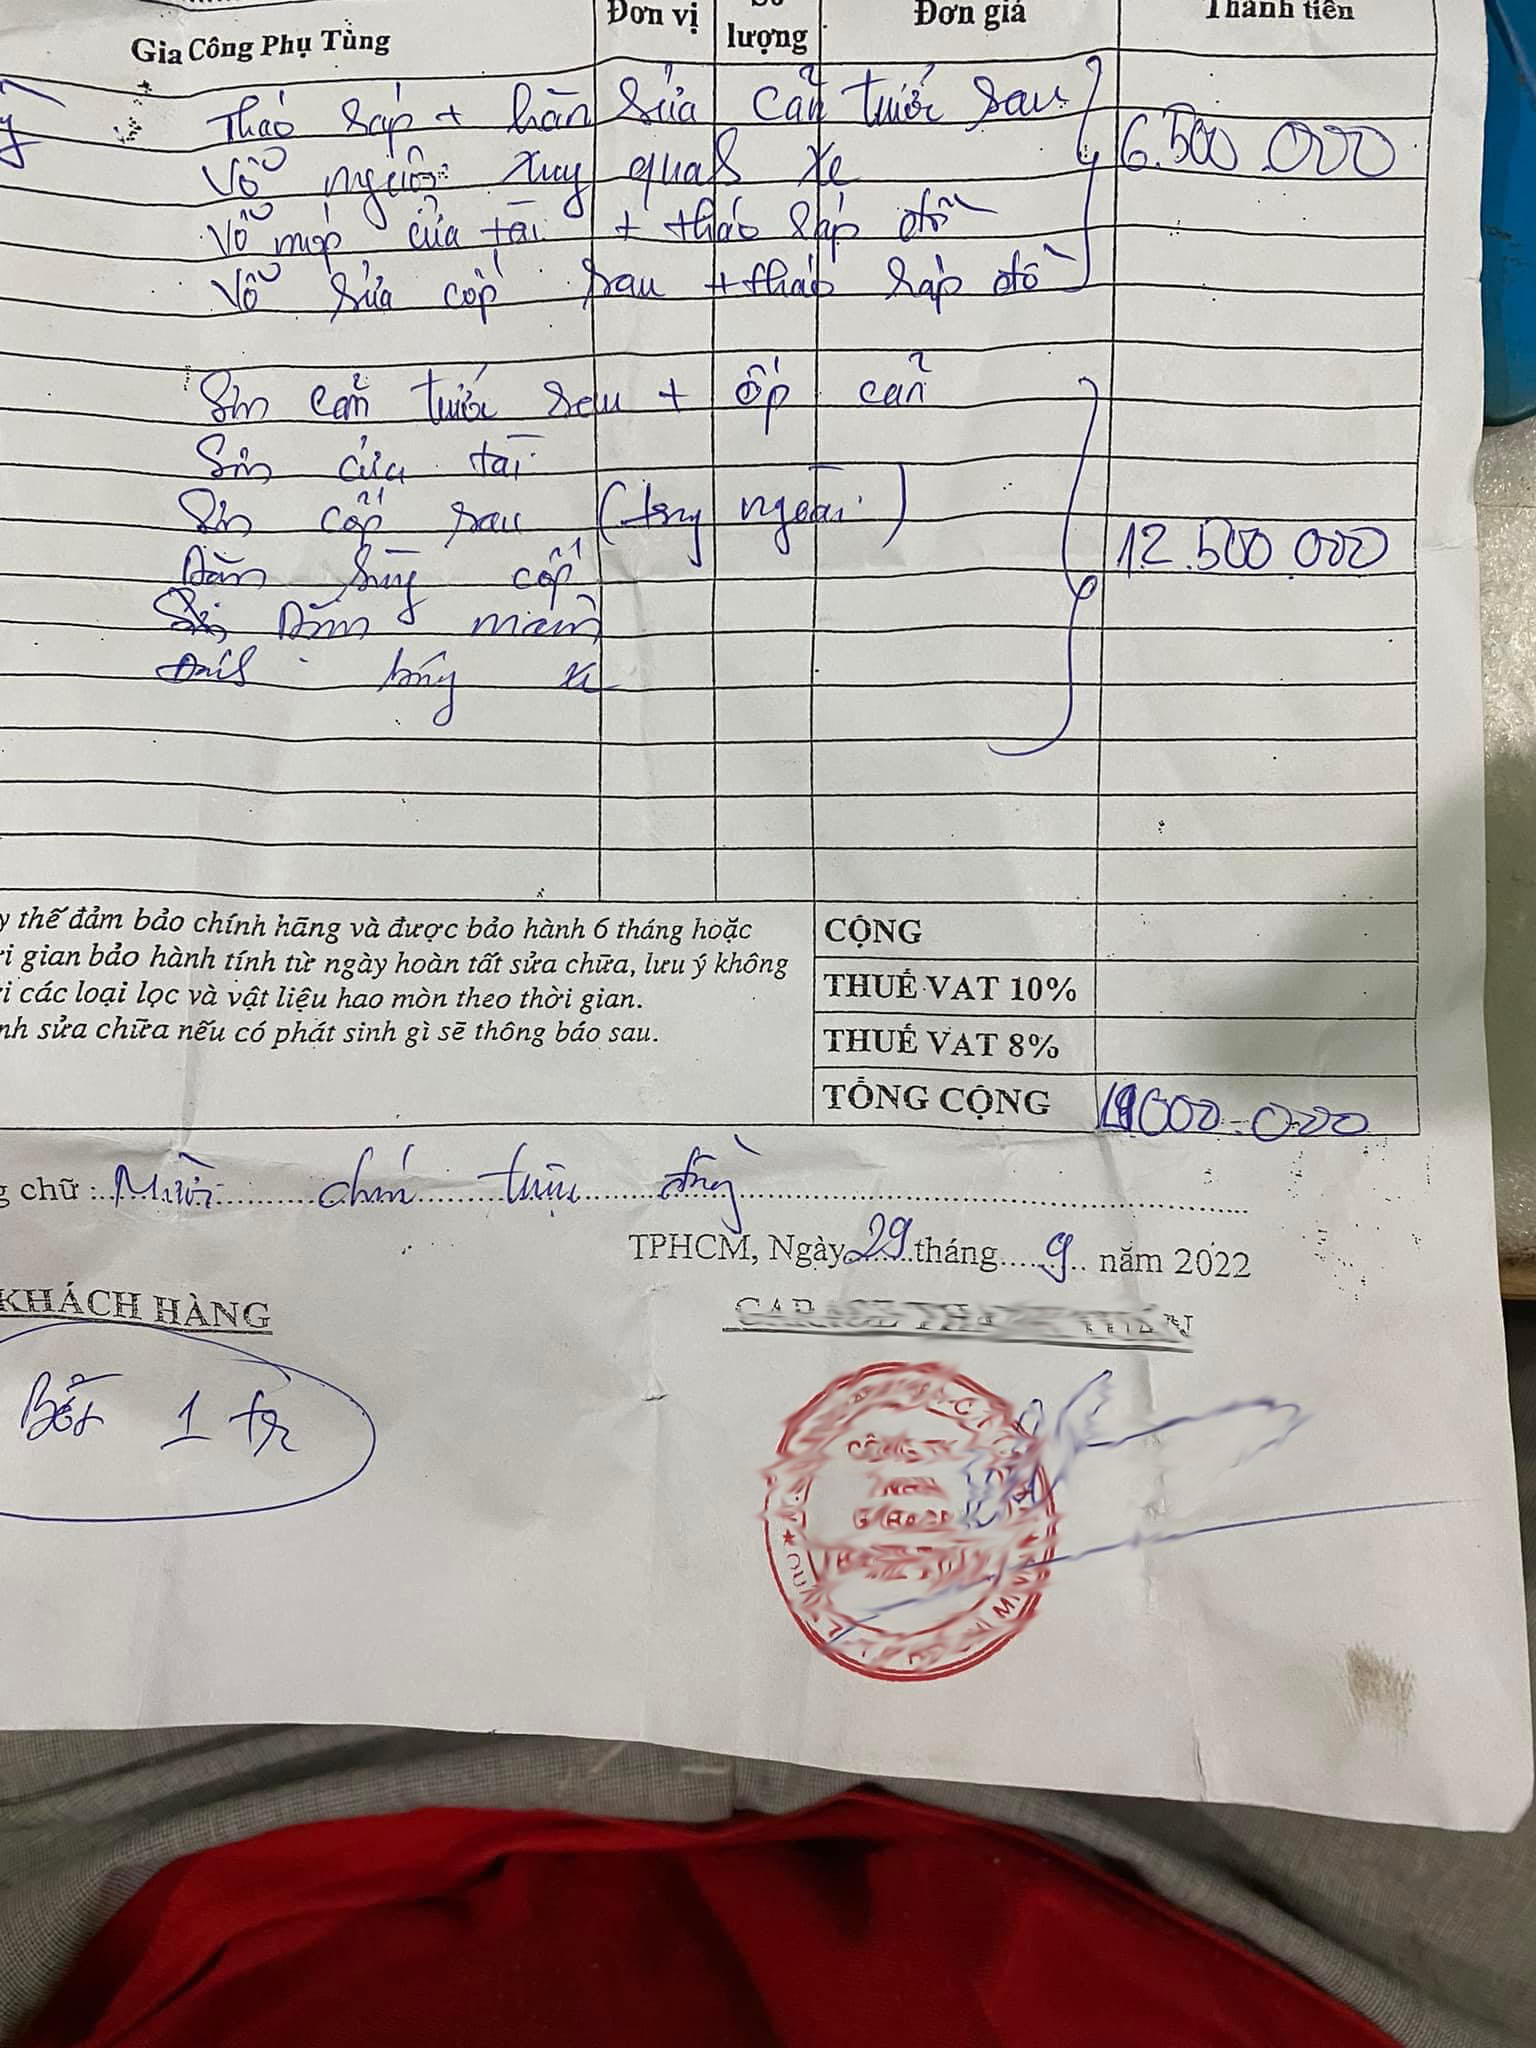 Gia Công Phụ Tùng Đơn vị Số lượng Đơn giá Thành tiền
Tháo ráp + hàn sửa cản trước sau
6.500.000
Vỗ xung quanh xe
Vỗ móp cửa tài + tháo ráp đồ
Vỗ sửa cốp sau + tháo ráp đồ
Sơn cản trước sau + ốp cản
Sơn cửa tài
Sơn cốp sau (trong ngoài)
12.500.000
Dàn cốp
Dàn
bóng xe
y thế đảm bảo chính hãng và được bảo hành 6 tháng hoặc
gian bảo hành tính từ ngày hoàn tất sửa chữa, lưu ý không
các loại lọc và vật liệu hao mòn theo thời gian.
sửa chữa nếu có phát sinh gì sẽ thông báo sau.
CỘNG
THUẾ VAT 10%
THUẾ VAT 8%
TỔNG CỘNG 19000.000
g chữ : Mười chín triệu đồng
TPHCM, Ngày 29 tháng 9 năm 2022
KHÁCH HÀNG
Bớt 1 tr